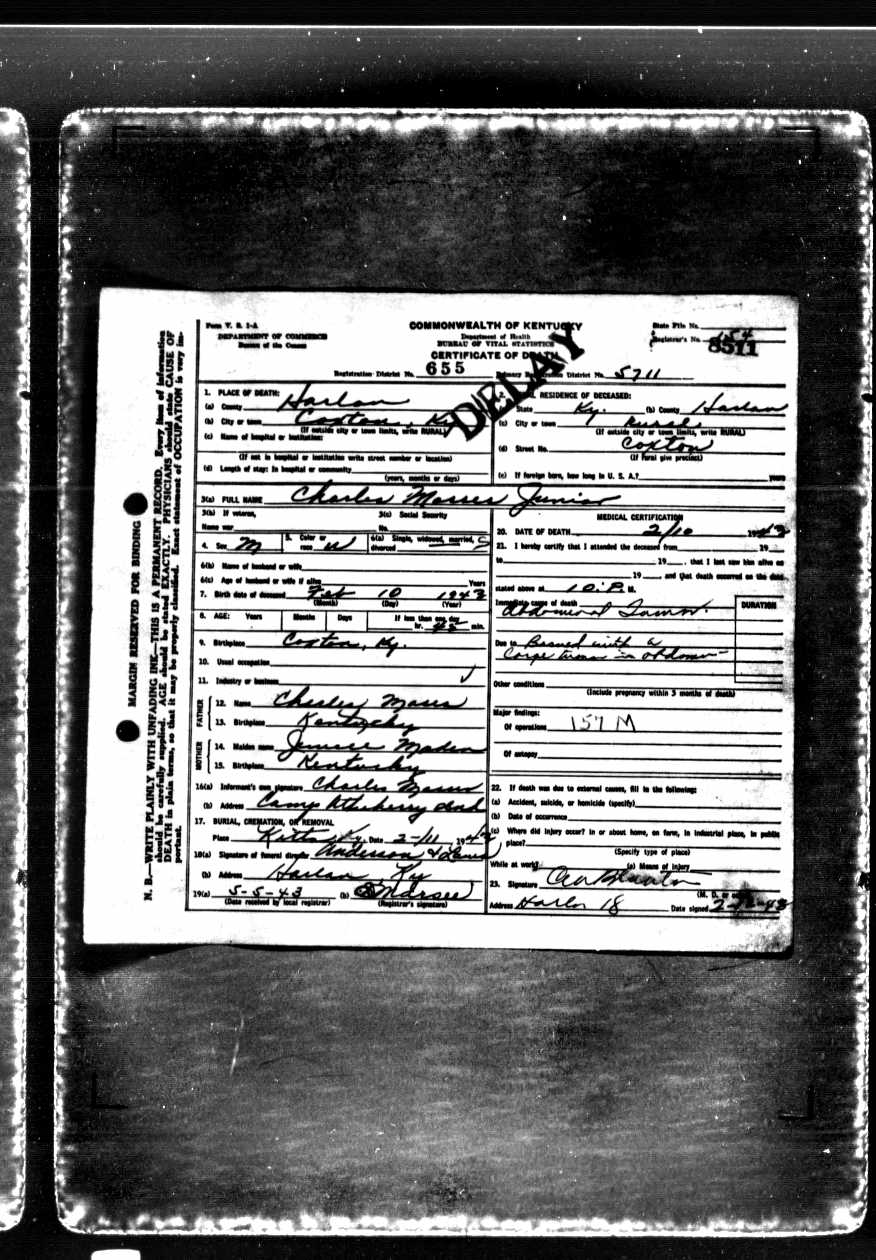 Form V. S. 1-A
DEPARTMENT OF COMMERCE
Bureau of the Census
COMMONWEALTH OF KENTUCKY
Department of Health
BUREAU OF VITAL STATISTICS
CERTIFICATE OF DEATH
State File No.
Registrar's No. 154
8511
Registration District No. 655 Primary Registration District No. 5711
DELAY
MARGIN RESERVED FOR BINDING
N. B.—WRITE PLAINLY WITH UNFADING INK—THIS IS A PERMANENT RECORD. Every item of information
should be carefully supplied. AGE should be stated EXACTLY. PHYSICIANS should state CAUSE OF
DEATH in plain terms, so that it may be properly classified. Exact statement of OCCUPATION is very im-
portant.
1. PLACE OF DEATH:
(a) County Harlan
(b) City or town Coxton, Ky
(If outside city or town limits, write RURAL)
(c) Name of hospital or institution:
(If not in hospital or institution write street number or location)
(d) Length of stay: In hospital or community
(years, months or days)
2. USUAL RESIDENCE OF DECEASED:
State Ky. (b) County Harlan
(c) City or town Rural
(If outside city or town limits, write RURAL)
(d) Street No. Coxton
(If rural give precinct)
(e) If foreign born, how long in U. S. A.? years
3(a) FULL NAME Charles Junior
3(b) If veteran,
Name war
3(c) Social Security
No.
4. Sex M
5. Color or
race W
6(a) Single, widowed, married,
divorced
6(b) Name of husband or wife
6(c) Age of husband or wife if alive Years
7. Birth date of deceased Feb 10 1943
(Month) (Day) (Year)
8. AGE: Years Months Days If less than one day
hr. 45 min.
9. Birthplace Coxton, Ky.
10. Usual occupation
11. Industry or business
FATHER
12. Name Charles
13. Birthplace Kentucky
MOTHER
14. Maiden name
15. Birthplace Kentucky
16(a) Informant's own signature Charles
(b) Address Camp Atterberry
17. BURIAL, CREMATION, OR REMOVAL
Place Ky. Date 2-11 1943
18(a) Signature of funeral director Anderson &
(b) Address Harlan, Ky
19(a) 5-5-43 (b)
(Date received by local registrar) (Registrar's signature)
MEDICAL CERTIFICATION
20. DATE OF DEATH 2/10 1943
21. I hereby certify that I attended the deceased from 19
to 19 , that I last saw him alive on
19 and that death occurred on the date
stated above at 10 P. M.
Immediate cause of death
Abdominal Tumor.
DURATION
Due to Borned with a
large tumor in abdomen
Other conditions
(Include pregnancy within 3 months of death)
Major findings:
Of operations 157 M
Of autopsy
22. If death was due to external causes, fill in the following:
(a) Accident, suicide, or homicide (specify)
(b) Date of occurrence
(c) Where did injury occur? in or about home, on farm, in industrial place, in public
place?
(Specify type of place)
While at work? (e) Means of injury
23. Signature
(M. D. or
Address Harlan Date signed